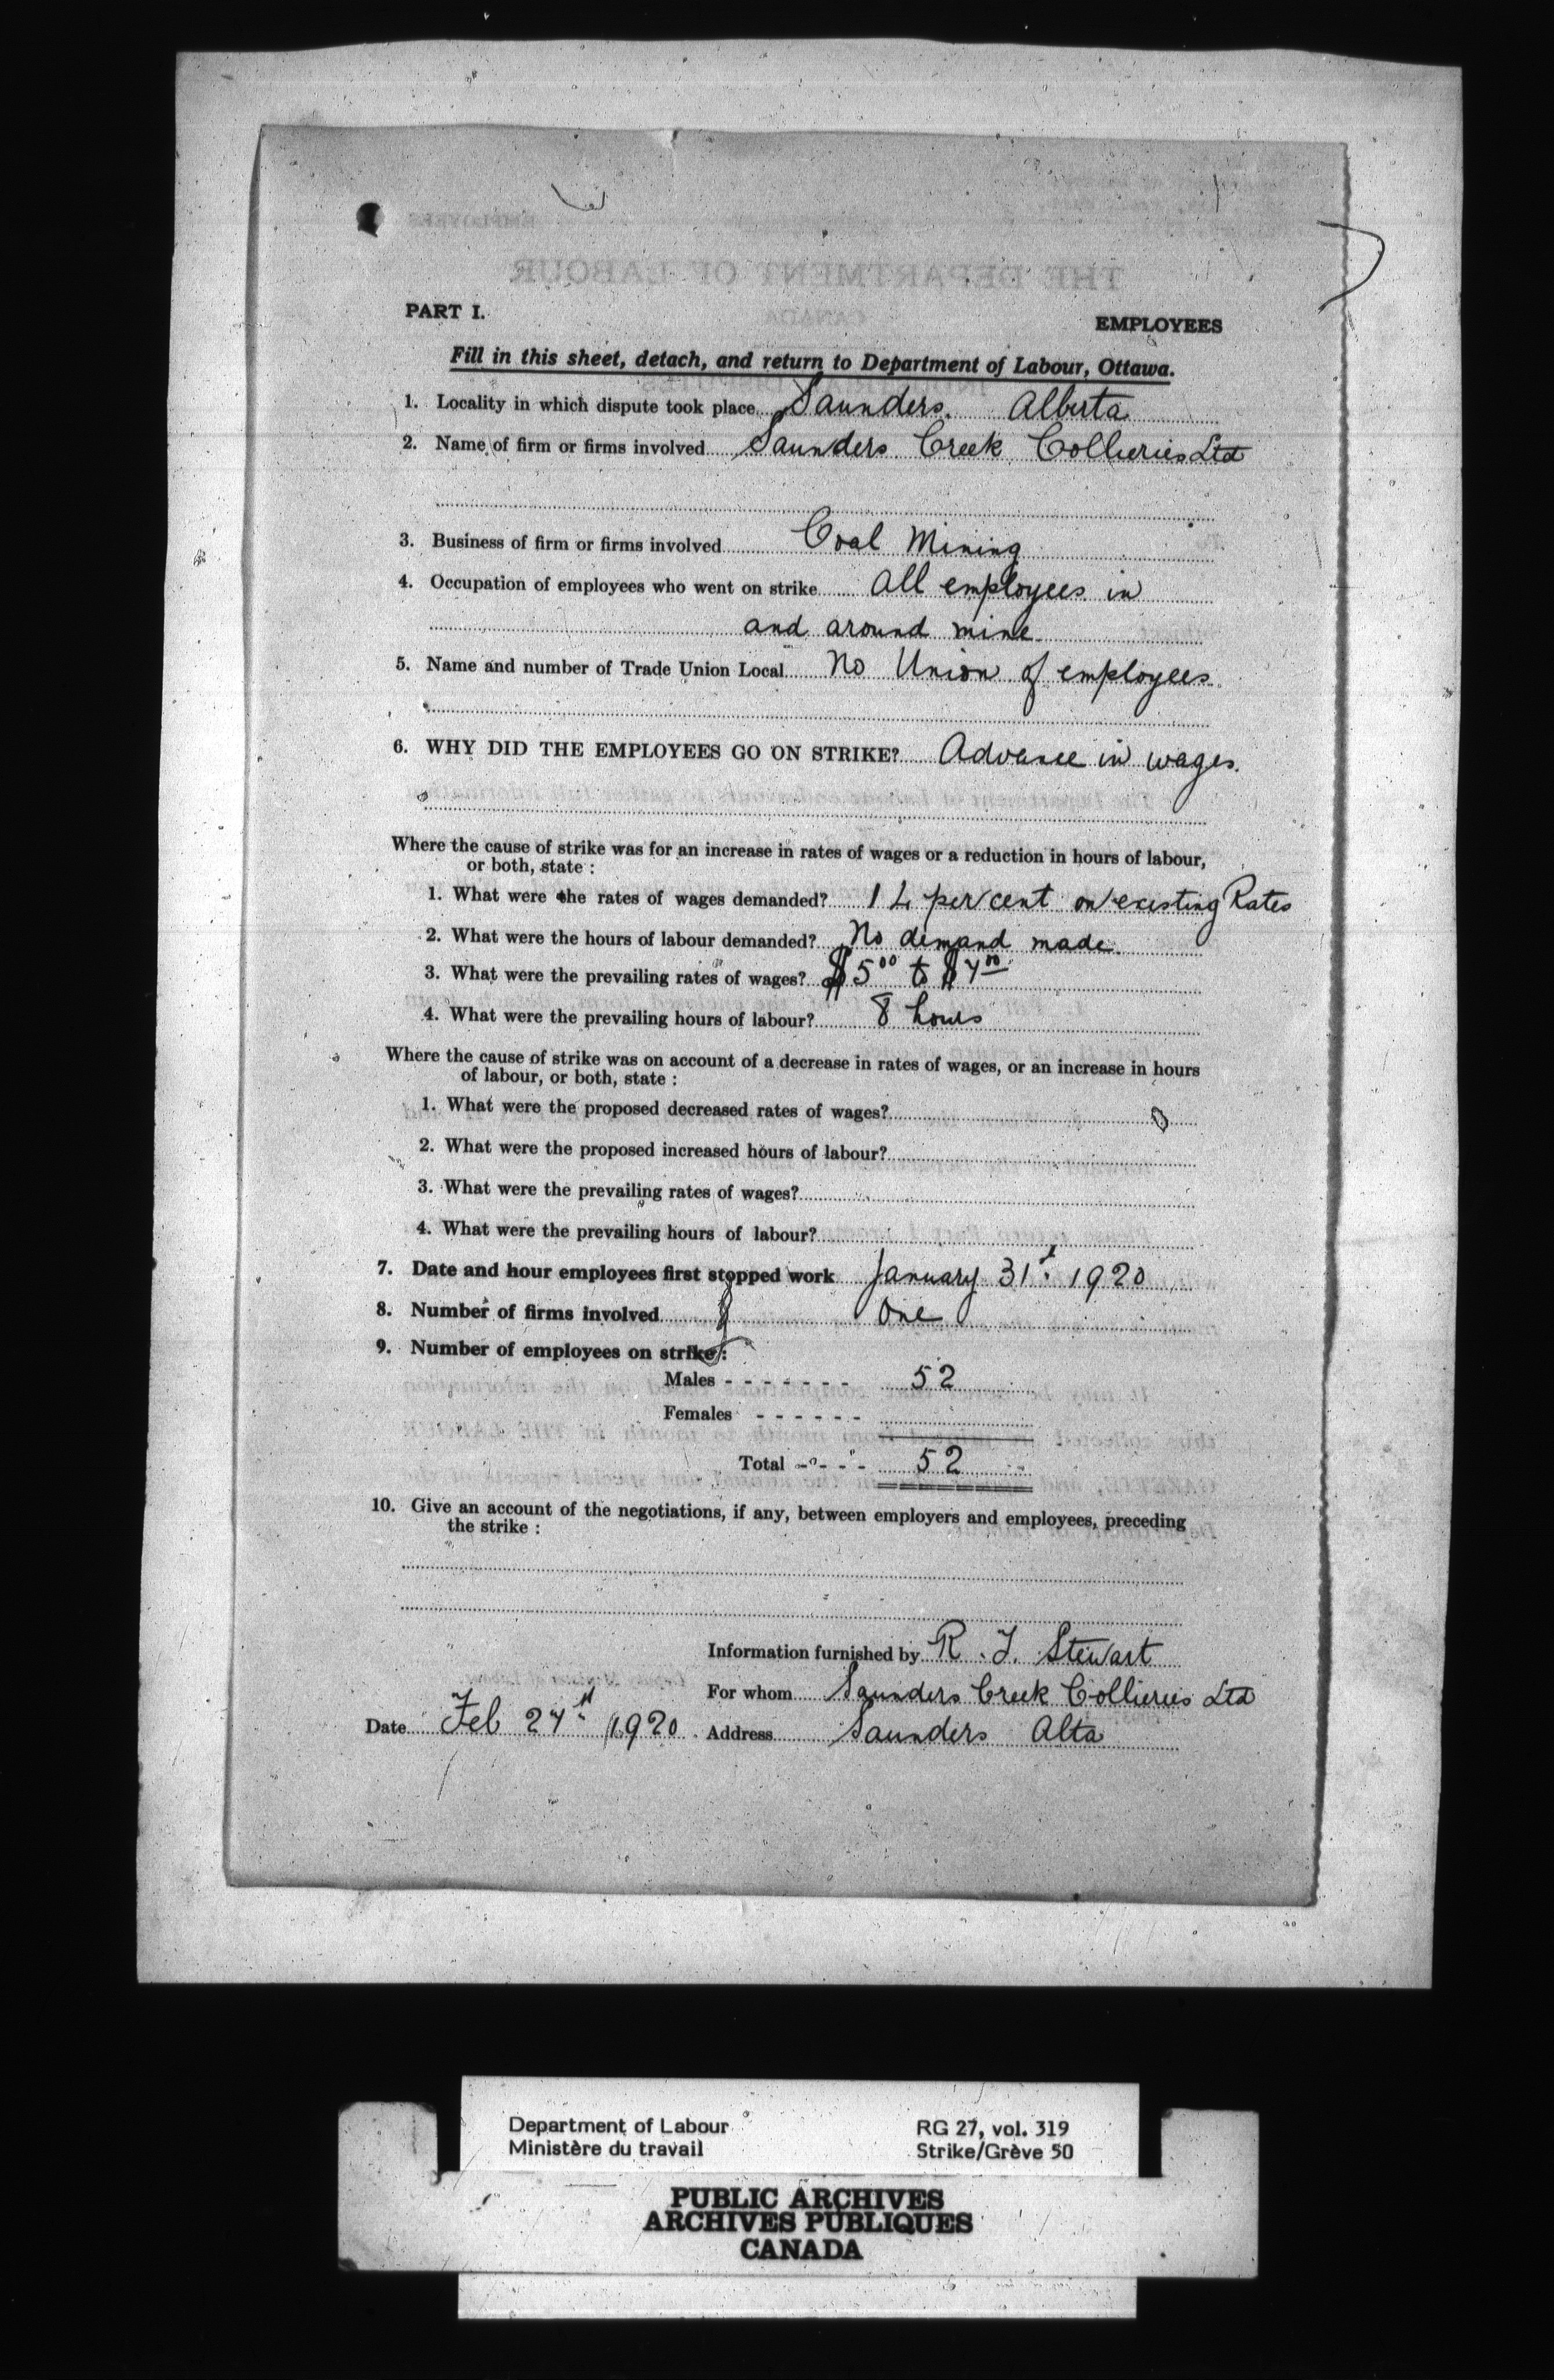 PART I.
EMPLOYEES
Fill in this sheet, detach, and return to Department of Labour, Ottawa.
1. Locality in which dispute took place Saunders. Alberta
2. Name of firm or firms involved Saunders Creek Collieries Ltd
3. Business of firm or firms involved Coal Mining
4. Occupation of employees who went on strike all employees in
and around mine.
5. Name and number of Trade Union Local No Union of employees
6. WHY DID THE EMPLOYEES GO ON STRIKE? Advance in wages.
Where the cause of strike was for an increase in rates of wages or a reduction in hours of labour,
or both, state :
1. What were the rates of wages demanded? 14 per cent on existing Rates
2. What were the hours of labour demanded? No demand made.
3. What were the prevailing rates of wages? $5.00 to $7.00
4. What were the prevailing hours of labour? 8 hours
Where the cause of strike was on account of a decrease in rates of wages, or an increase in hours
of labour, or both, state :
1. What were the proposed decreased rates of wages?
2. What were the proposed increased hours of labour?
3. What were the prevailing rates of wages?
4. What were the prevailing hours of labour?
7. Date and hour employees first stopped work January 31st 1920
8. Number of firms involved One
9. Number of employees on strike :
Males - - - - - - - 52
Females - - - - - -
Total - - - - 52
10. Give an account of the negotiations, if any, between employers and employees, preceding
the strike :
Information furnished by R. J. Stewart
For whom Saunders Creek Collieries Ltd
Date Feb 27th 1920. Address Saunders Alta
Department of Labour RG 27, vol. 319
Ministère du travail Strike/Grève 50
PUBLIC ARCHIVES
ARCHIVES PUBLIQUES
CANADA